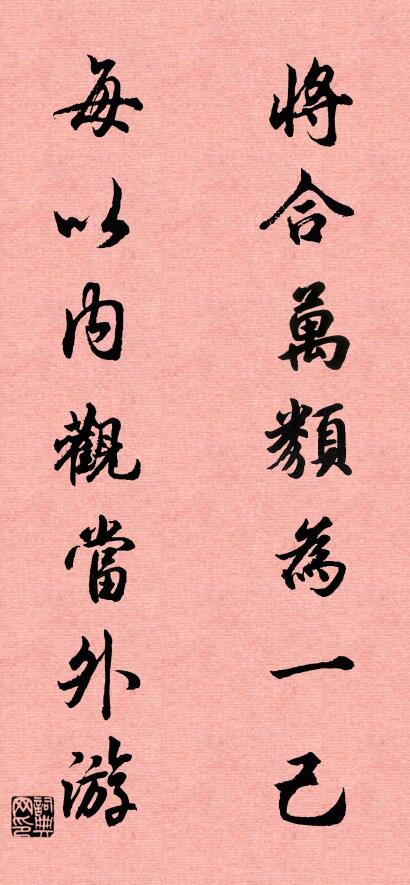 將合萬類為一己
每以內觀當外游
詞典网印